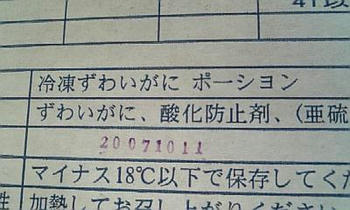 冷凍ずわいがに ポーション
ずわいがに、酸化防止剤、(亜硫
20071011
マイナス18℃以下で保存してくだ
性 加熱してお召し上がりください